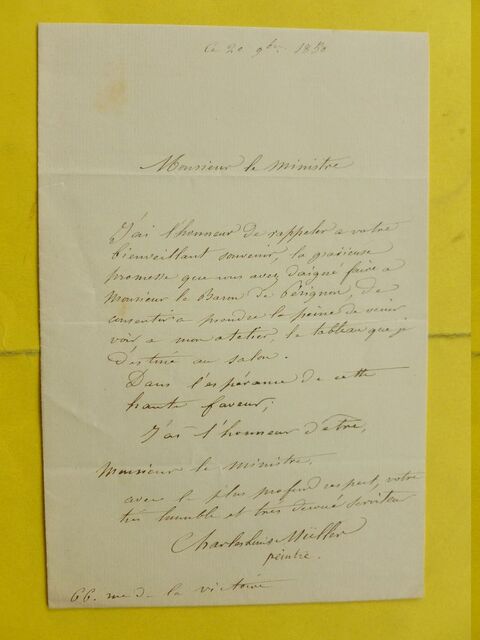 Ce 20 9bre 1850
Monsieur le ministre
J'ai l'honneur de rappeler a votre
bienveillant souvenir, la gracieuse
promesse que vous avez daigné faire a
Monsieur le Baron de Pérignon, de
consentir a prendre la peine de venir
voir a mon atelier, le tableau que je
destine au salon.
Dans l'espérance de cette
haute faveur,
J'ai l'honneur d'être,
Monsieur le ministre,
avec le plus profond respect, votre
très humble et très dévoué serviteur
Charles Louis Müller
peintre.
66. rue de la victoire